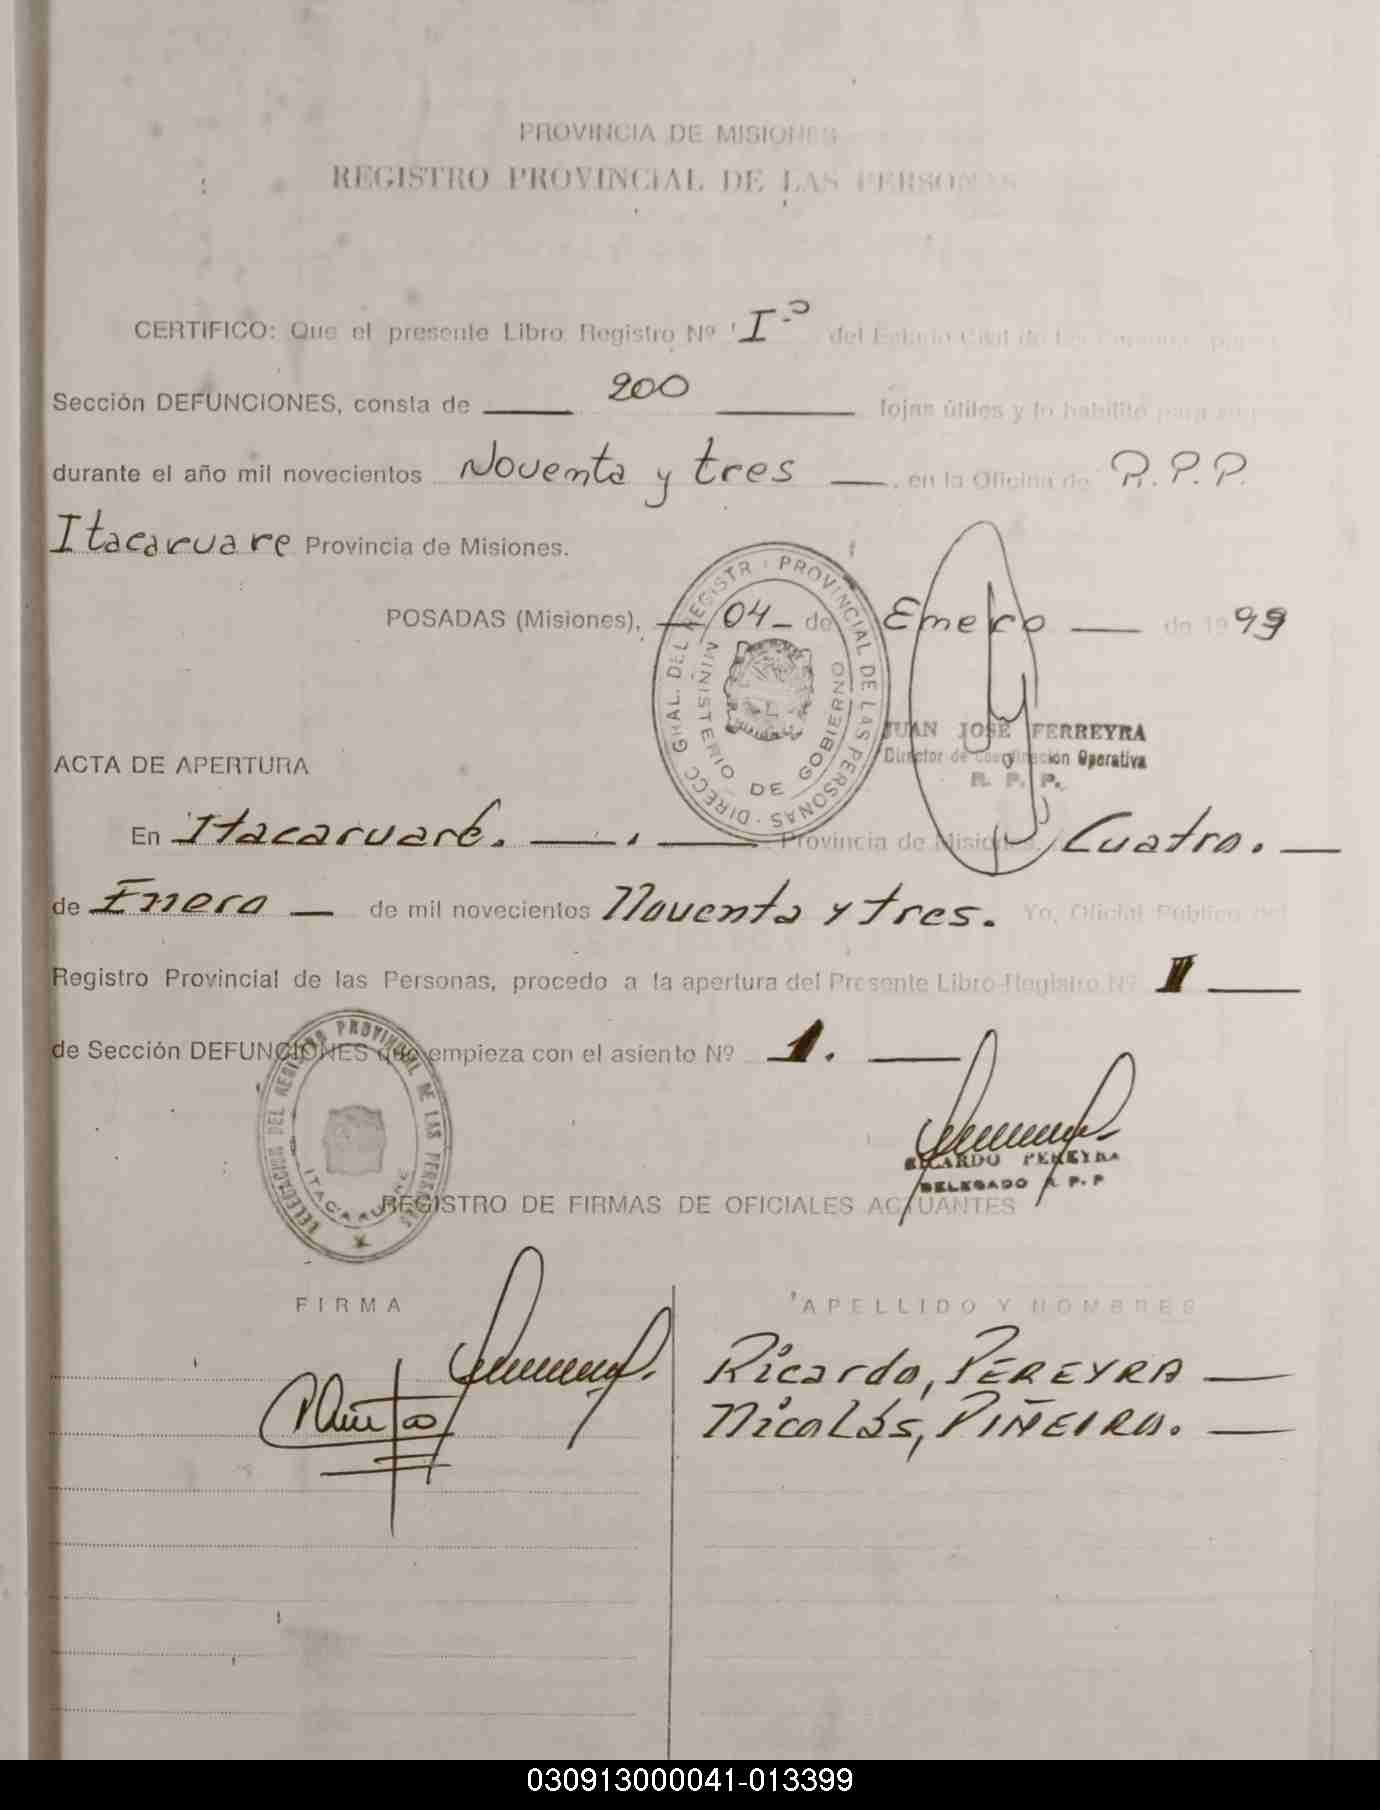 PROVINCIA DE MISIONES
REGISTRO PROVINCIAL DE LAS PERSONAS
CERTIFICO: Que el presente Libro Registro Nº I-º del Estado Civil de las Personas
Sección DEFUNCIONES, consta de 200 fojas útiles y lo habilito para
durante el año mil novecientos Noventa y tres en la Oficina de R.P.P.
Itacaruare Provincia de Misiones.
POSADAS (Misiones), 04 de Enero de 1993
DIRECC GRAL. DEL REGISTR PROVINCIAL DE LAS PERSONAS
MINISTERIO DE GOBIERNO
JUAN JOSE FERREYRA
Director de Coordinación Operativa
R. P. P.
ACTA DE APERTURA
En Itacaruaré. Provincia de Misiones, Cuatro.
de Enero de mil novecientos Noventa y tres. Yo, Oficial Público del
Registro Provincial de las Personas, procedo a la apertura del Presente Libro Registro Nº
de Sección DEFUNCIONES que empieza con el asiento Nº 1.
DELEGACION DEL REGISTRO PROVINCIAL DE LAS PERSONAS
ITACARUARE
RICARDO PEREYRA
DELEGADO R.P.P
REGISTRO DE FIRMAS DE OFICIALES ACTUANTES
FIRMA APELLIDO Y NOMBRES
Ricardo, PEREYRA
Nicolás, PIÑEIRO.
030913000041-013399